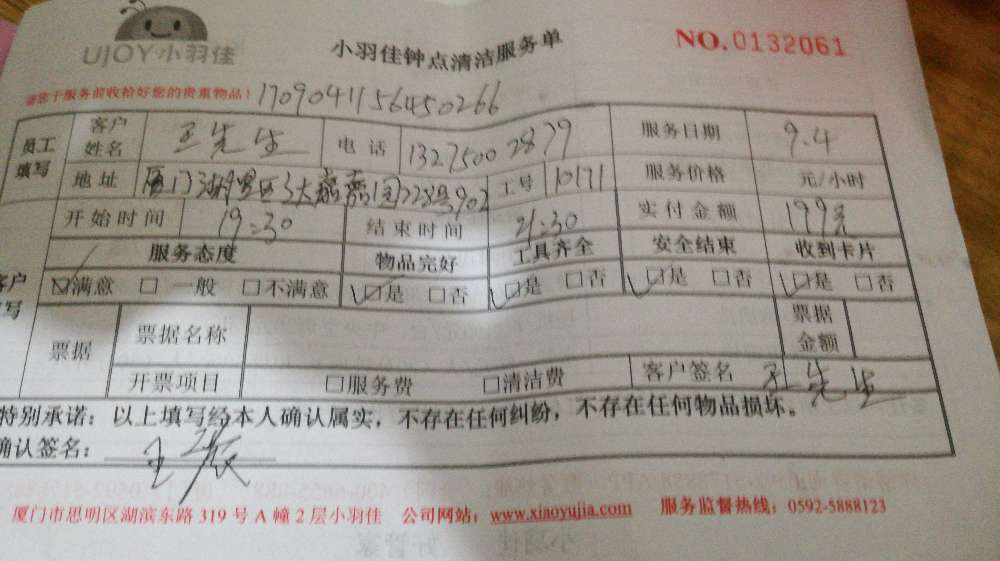 UJOY小羽佳
小羽佳钟点清洁服务单
NO.0132061
请您于服务前收拾好您的贵重物品! 1709041156450266
员工填写 客户姓名 王先生 电话 13275002879 服务日期 9.4
地址 厦门湖里区 228号902 工号 10171 服务价格 元/小时
开始时间 19:30 结束时间 21:30 实付金额 199元
服务态度 物品完好 工具齐全 安全结束 收到卡片
客户填写 ☑满意 □一般 □不满意 ☑是 □否 ☑是 □否 ☑是 □否 ☑是 □否
票据 票据名称 票据金额
开票项目 □服务费 □清洁费 客户签名 王先生
特别承诺:以上填写经本人确认属实,不存在任何纠纷,不存在任何物品损坏。
确认签名:
厦门市思明区湖滨东路 319 号 A 幢 2 层小羽佳 公司网站:www.xiaoyujia.com 服务监督热线:0592-5888123